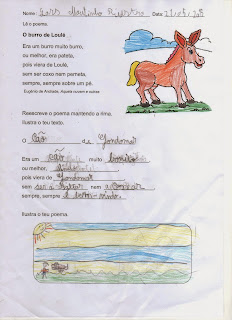 Nome: Martinho Data:
Lê o poema.
O burro de Loulé
Era um burro muito burro,
ou melhor, era pateta,
pois viera de Loulé,
sem ser coxo nem perneta,
sempre, sempre sobre um pé.
Eugénio de Andrade, Aquela nuvem e outras
Reescreve o poema mantendo a rima.
Ilustra o teu texto.
O cão de Gondomar
Era um cão muito
ou melhor,
pois viera de Gondomar
sem nem
sempre, sempre
Ilustra o teu poema.